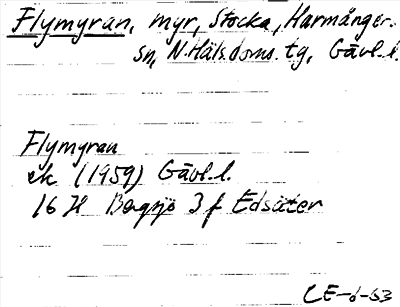 Flymyran, myr, Stocka, Harmånger.
sn, N. Häls. doms. tg, Gävl. l.
Flymyran
ek (1959) Gävl. l.
16 H Bergsjö 3 f Edsäter
CE-6-63